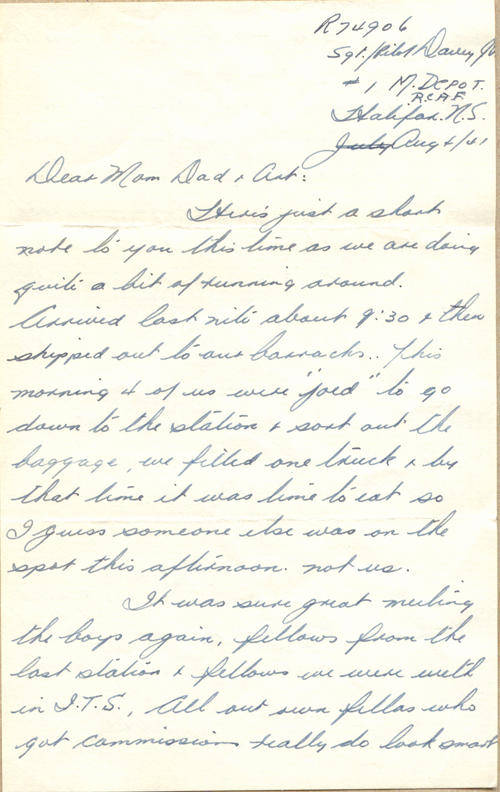 R74906
Sgt./Pilot Davey
# 1 M. DEPOT.
R.C.A.F.
Halifax. N.S.
July Aug 4/41
Dear Mom Dad + Art:
Here's just a short
note to you this time as we are doing
quite a bit of running around.
Arrived last nite about 9:30 + then
shipped out to our barracks.. This
morning 4 of us were "joed" to go
down to the station + sort out the
baggage, we filled one truck + by
that time it was time to eat so
I guess someone else was on the
spot this afternoon. not us.
It was sure great meeting
the boys again, fellows from the
last station + fellows we were with
in I.T.S., All out own fellas who
got commissions really do look smart